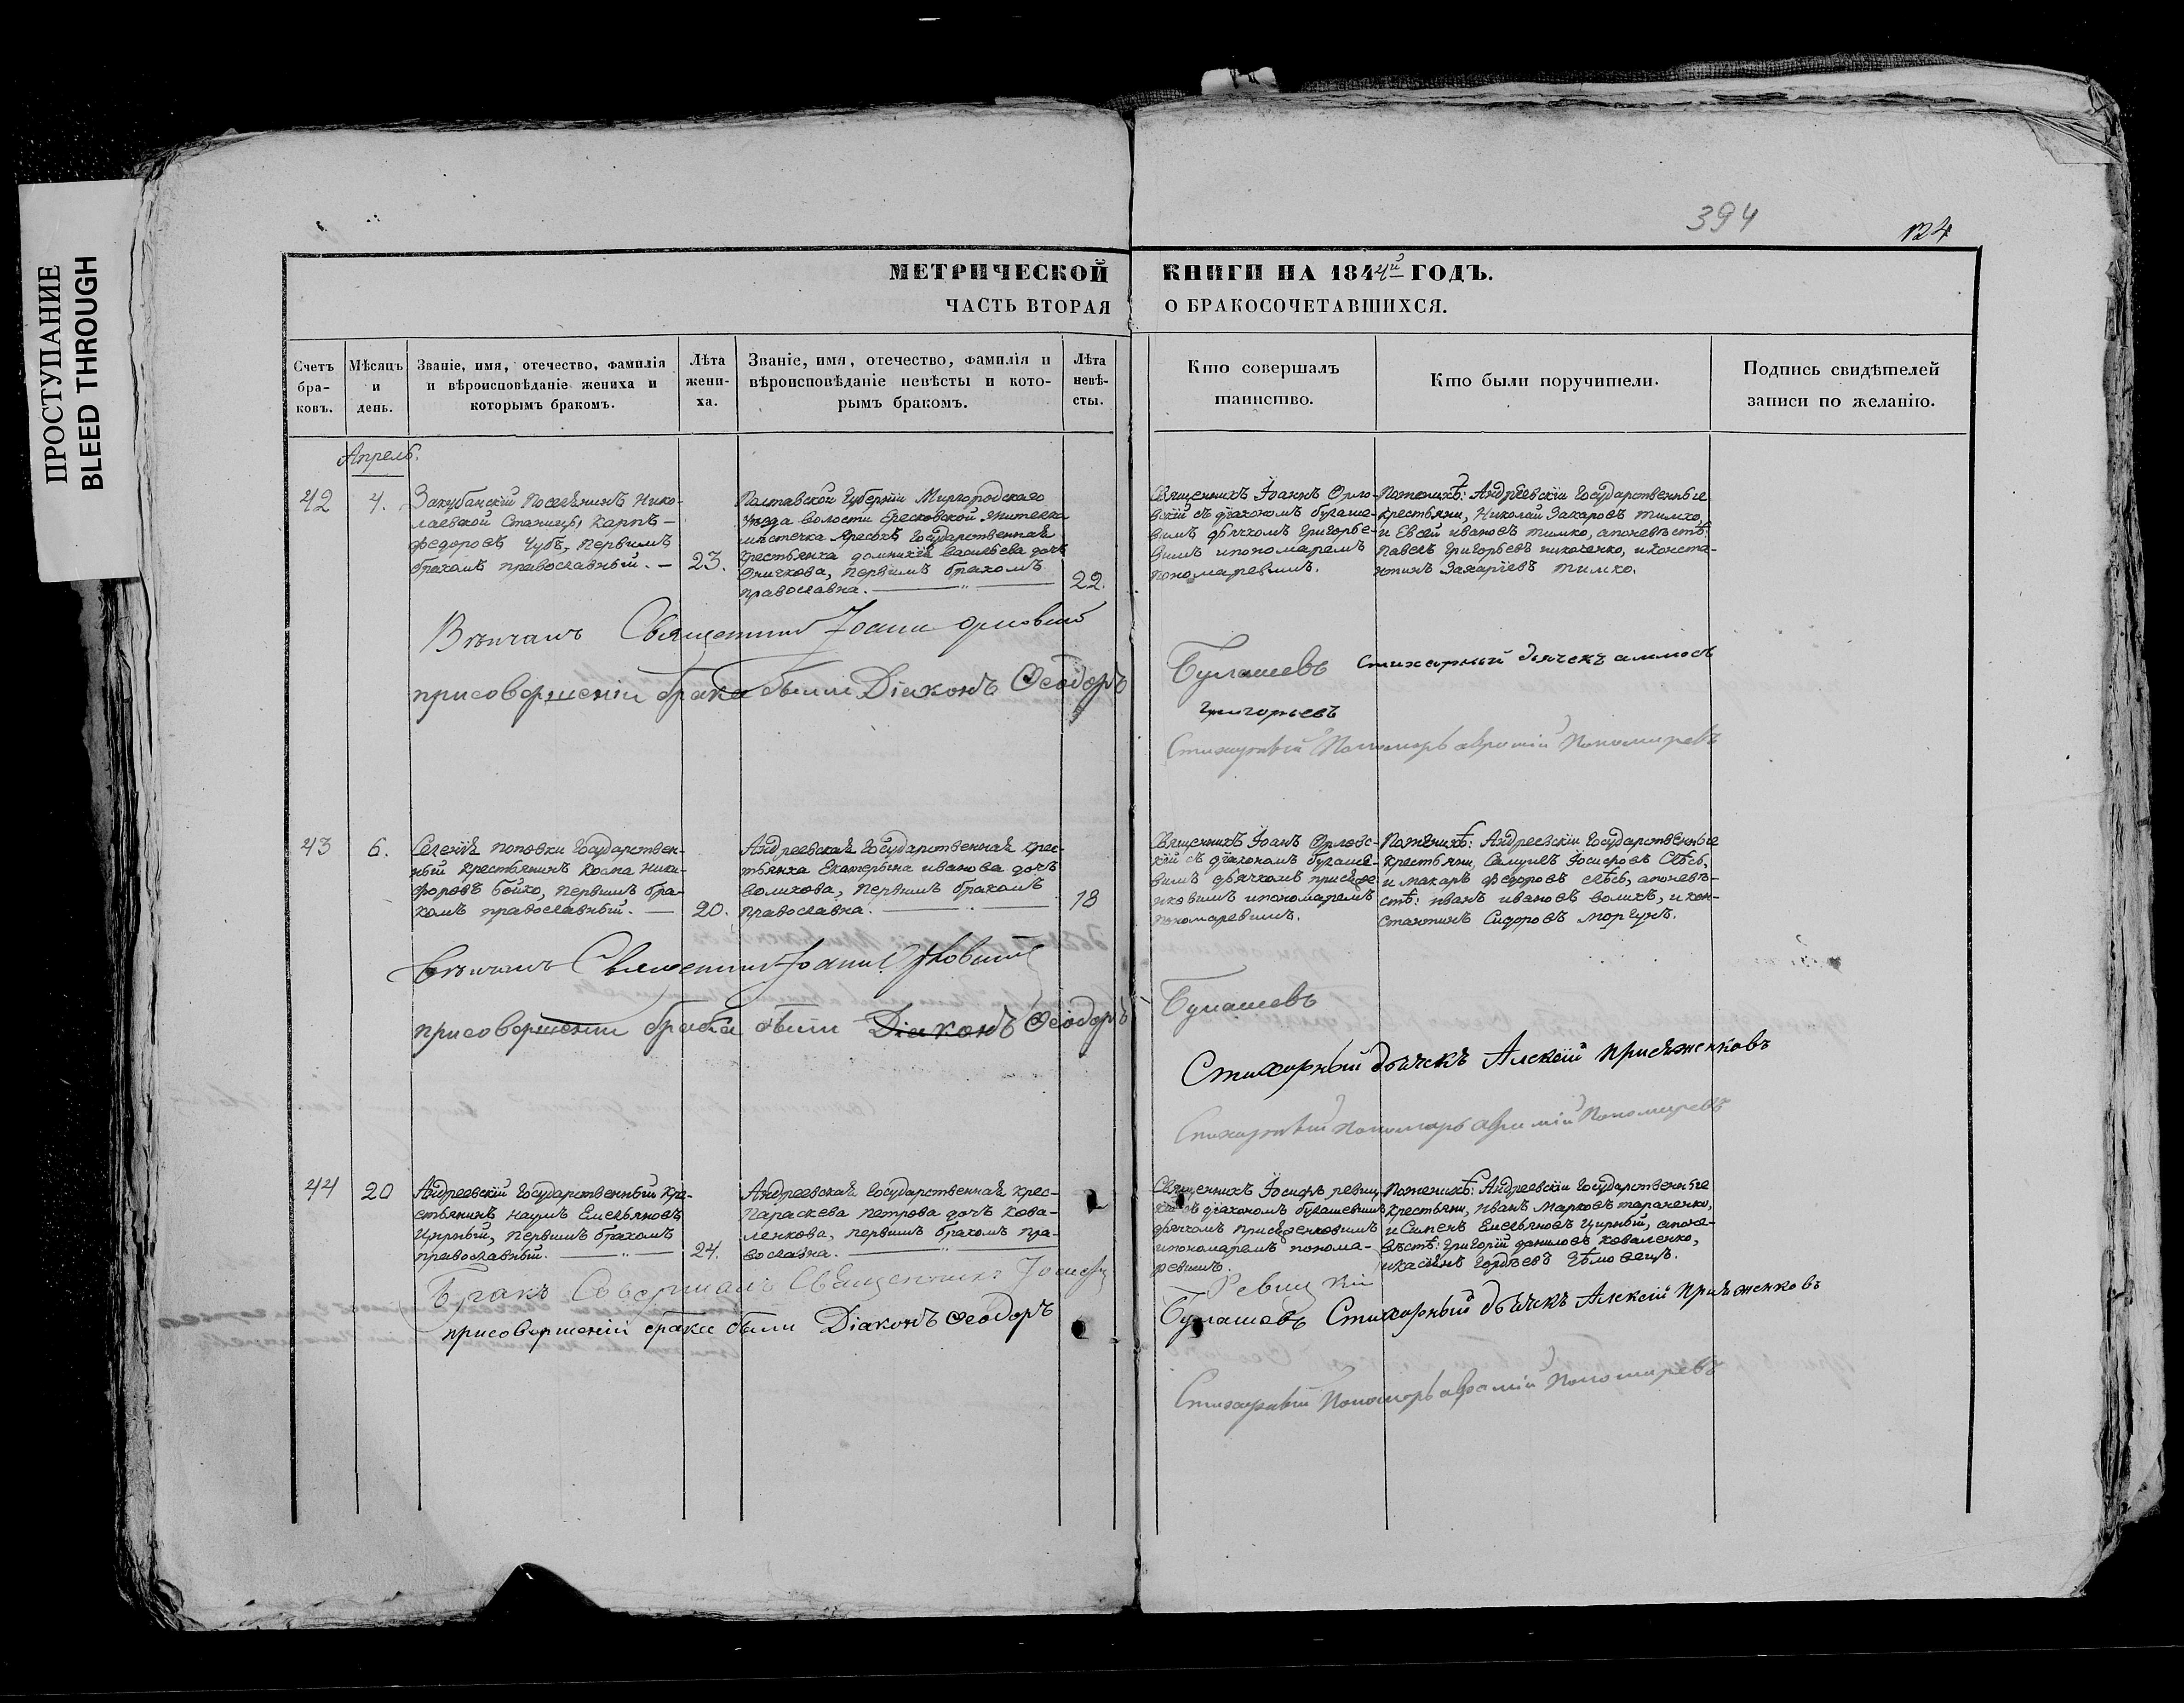 ПРОСТУПАНИЕ
BLEED THROUGH
394
МЕТРИЧЕСКОЙ КНИГИ НА 1844й ГОДЪ.
ЧАСТЬ ВТОРАЯ О БРАКОСОЧЕТАВШИХСЯ.
Счетъ бра-
ковъ.
Мѣсяцъ
и
день.
Званіе, имя, отечество, фамилія
и вѣроисповѣданіе жениха и
которымъ бракомъ.
Лѣта
жени-
ха.
Званіе, имя, отечество, фамилія и
вѣроисповѣданіе невѣсты и кото-
рымъ бракомъ.
Лѣта
невѣ-
сты.
Кто совершалъ
таинство.
Кто были поручители.
Подпись свидѣтелей
записи по желанію.
Апрель.
42
4.
Закубанскій Поселянинъ Нико-
лаевской Станицы, Карпъ
Федоровъ Чубъ, первымъ
бракомъ православный.
23.
Полтавской Губерніи Миргородскаго
уезда волости Ересковской жителка
местечка Яресокъ Государственная
крестьянка домникія Васильева дочь
первымъ бракомъ
православна.
22.
Священникъ Іоаннъ Орло-
вскій съ діакономъ булаше-
вимъ дьячкомъ Григорье-
вимъ ипономаремъ
пономаревимъ.
Поженихѣ: Андреевскіи Государственные
крестьяни, Николай Захаровъ тимко,
и Евсей ивановъ тимко, апоневѣстѣ:
Павелъ Григорьевъ николенко, иконста-
нтинъ Захаріевъ тимко.
Вѣнчалъ Священникъ Іоаннъ Орловскій
присовершеніи брака были Діаконъ Феодоръ
Булашевъ Стихарный дьячекъ
Григорьевъ
Стихарный Пономарь Пономаревъ
43
6.
Селенія поповки Государствен-
ный крестьянинъ Косма Ники-
форовъ бойко, первимъ бра-
комъ православный.
20.
Андреевская Государственная крес-
тьянка Екатерина иванова дочь
воликова, первымъ бракомъ
православна.
18
Священникъ Іоанъ Орловс-
кій съ діакономъ булаше-
вимъ дьячкомъ присяже
нковимъ ипономаремъ
пономаревимъ.
Поженихѣ: Андреевскіи Государственные
крестьяни, Самуилъ Іосифовъ
и макаръ федоровъ апоневѣ-
стѣ: иванъ ивановъ воликъ, икон-
стантинъ Сидоровъ моргунъ.
Вѣнчалъ Священникъ Іоаннъ Орловскій
присовершении брака были Діаконъ Феодоръ
Булашевъ
Стихорный дьячекъ Алексій присяженковъ
Стихарный Пономарь Пономаревъ
44
20
Андреевскій Государственный кре-
стьянинъ наумъ Емельяновъ
Цирный, первимъ бракомъ
православный.
24.
Андреевская Государственная крес-
Параскева петрова дочь кова-
ленкова, первимъ бракомъ пра-
вославна.
Священникъ Іосифъ ревиц
кій съ діакономъ булашевимъ
дьячкомъ присяженковимъ
ипономаремъ понома-
ревимъ.
Поженихѣ: Андреевскіи Государственные
крестьяни, иванъ Марковъ тараненко,
и Сименъ Емельяновъ Цирный, апоне-
вѣстѣ: григорій даниловъ коваленко,
икасіянъ Гордѣевъ
Бракъ Совершалъ Священникъ Іосифъ
Ревицкій
присовершеніи брака были Діаконъ Феодоръ
Булашевъ Стихорный дьячекъ Алексій присяженковъ
Стихарный Пономарь Пономаревъ